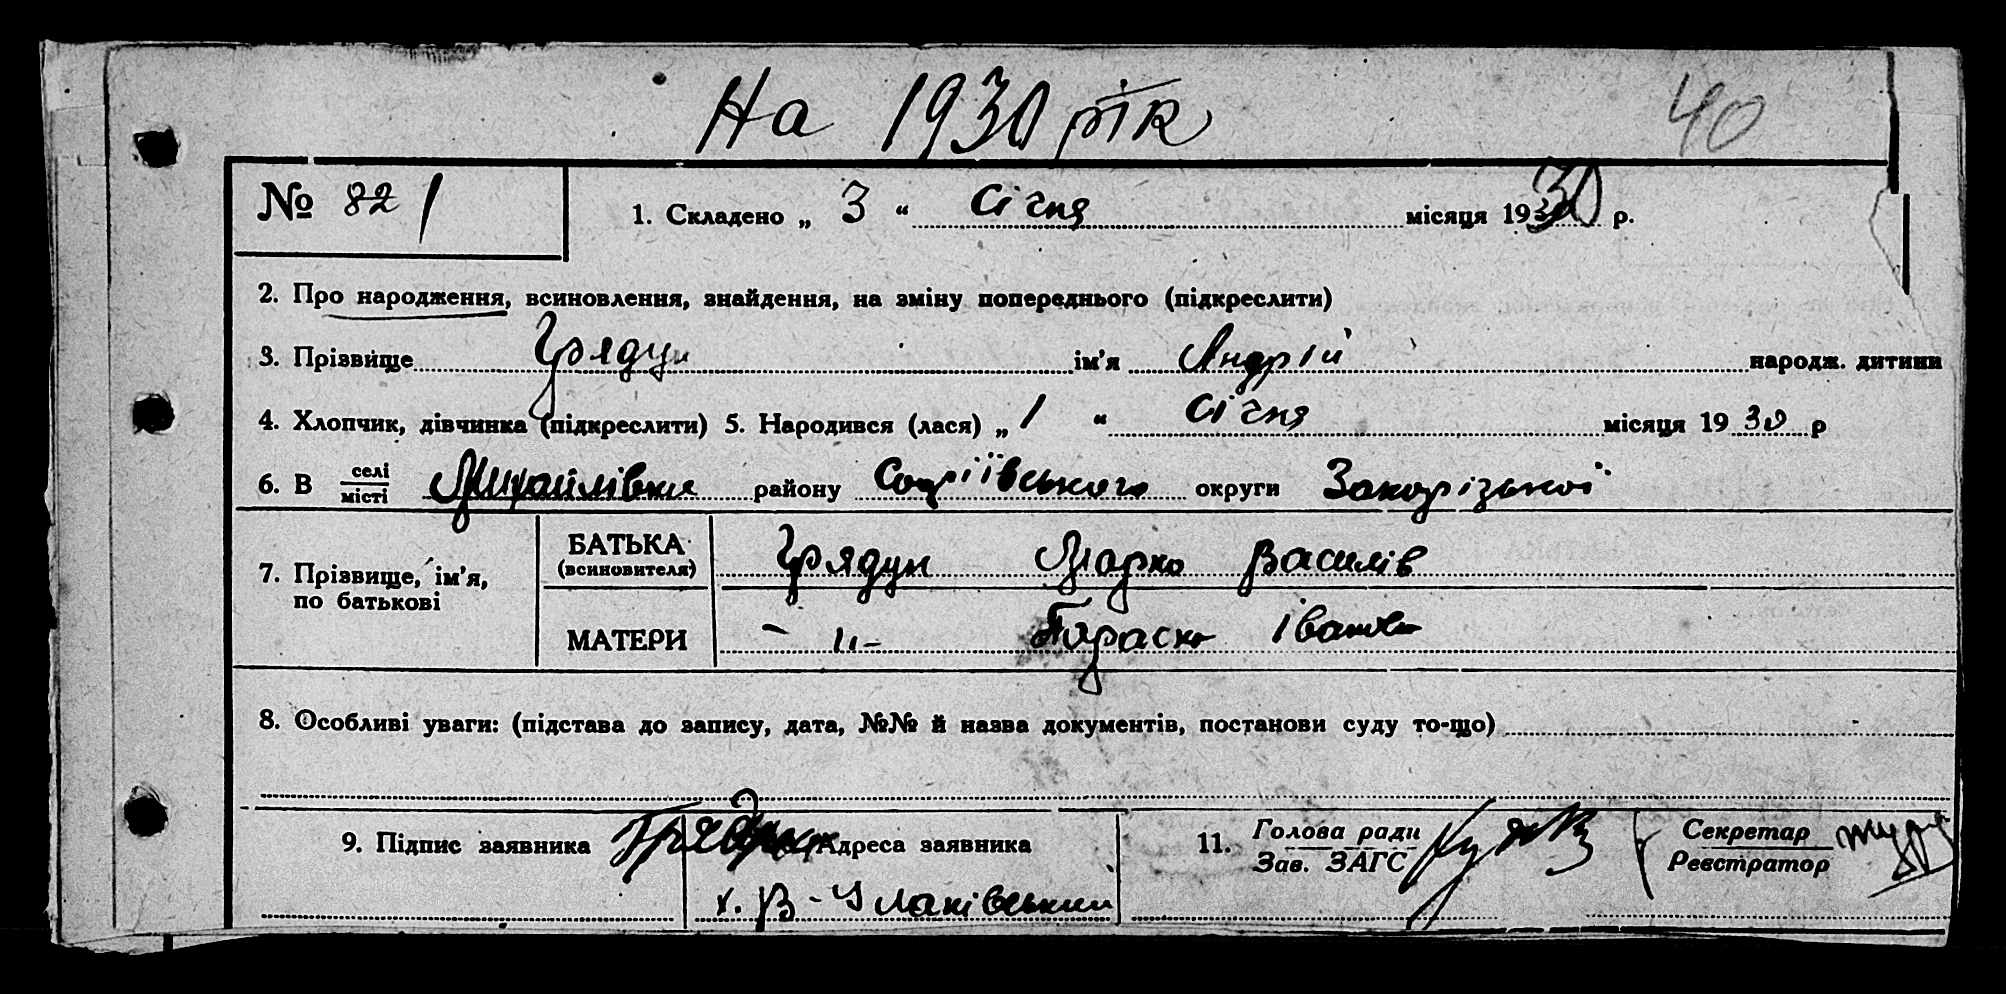 На 1930 рік
40
№ 82 1
1. Складено „ 3 “ Січня місяця 1930 р.
2. Про народження, всиновлення, знайдення, на зміну попереднього (підкреслити)
3. Прізвище Грядун ім’я Андрій народж. дитини
4. Хлопчик, дівчинка (підкреслити) 5. Народився (лася) „ 1 “ Січня місяця 1930 р
6. В селі місті Михайлівки району Софіївського округи Запорізької
7. Прізвище, ім’я, по батькові
БАТЬКА (всиновителя) Грядун Марко Василів
МАТЕРИ - " - Параска Іванова
8. Особливі уваги: (підстава до запису, дата, №№ й назва документів, постанови суду то-що)
9. Підпис заявника Адреса заявника
х.
11. Голова ради Зав. ЗАГС
Секретар Реєстратор